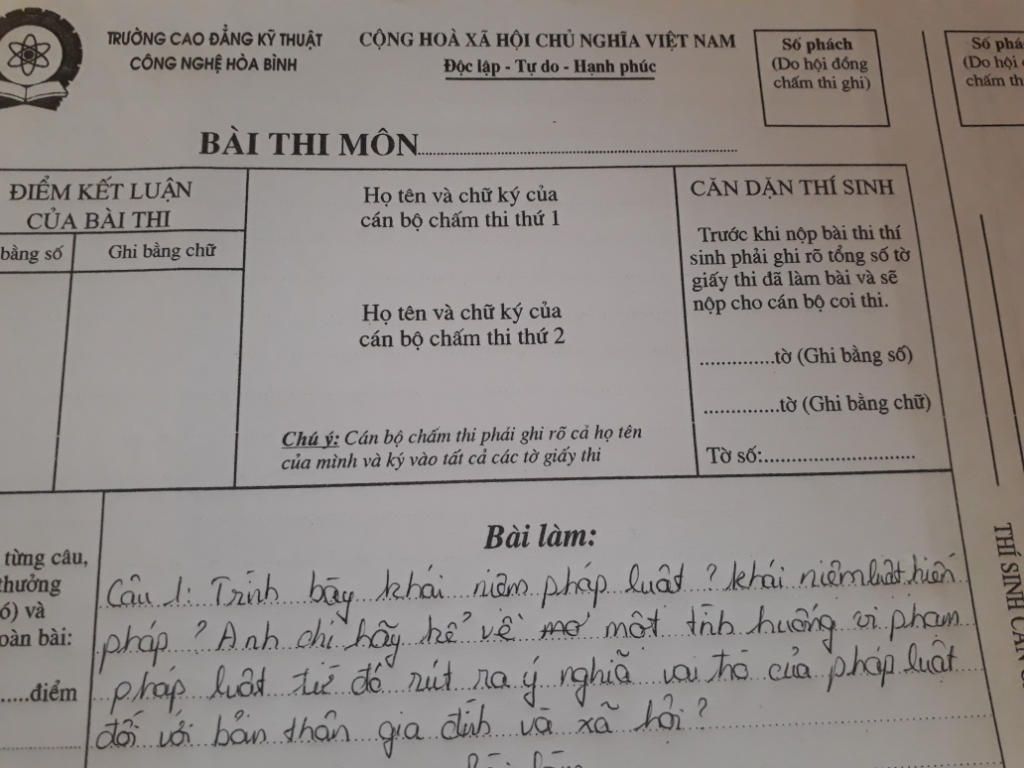 TRƯỜNG CAO ĐẲNG KỸ THUẬT
CÔNG NGHỆ HÒA BÌNH
CỘNG HOÀ XÃ HỘI CHỦ NGHĨA VIỆT NAM
Độc lập - Tự do - Hạnh phúc
Số phách
(Do hội đồng
chấm thi ghi)
Số phá
(Do hội
chấm th
BÀI THI MÔN
ĐIỂM KẾT LUẬN
CỦA BÀI THI
bằng số
Ghi bằng chữ
Họ tên và chữ ký của
cán bộ chấm thi thứ 1
Họ tên và chữ ký của
cán bộ chấm thi thứ 2
Chú ý: Cán bộ chấm thi phải ghi rõ cả họ tên
của mình và ký vào tất cả các tờ giấy thi
CĂN DẶN THÍ SINH
Trước khi nộp bài thi thí
sinh phải ghi rõ tổng số tờ
giấy thi đã làm bài và sẽ
nộp cho cán bộ coi thi.
..............tờ (Ghi bằng số)
..............tờ (Ghi bằng chữ)
Tờ số:............................
từng câu,
thưởng
ó) và
oàn bài:
......điểm
Bài làm:
Câu 1: Trình bày khái niệm pháp luật? khái niệm luật hiến
pháp? Anh chị hãy kể về một tình huống vi phạm
pháp luật từ đó rút ra ý nghĩa vai trò của pháp luật
đối với bản thân gia đình và xã hội?
THÍ SINH